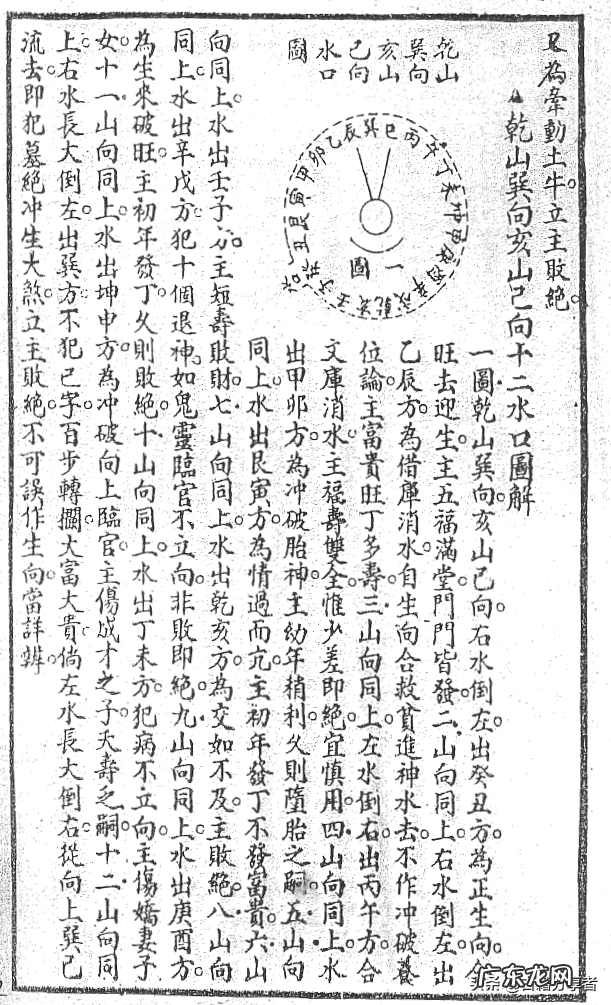 又為牽動土牛立主敗絕
乾山巽向亥山巳向十二水口圖解
一圖乾山巽向亥山巳向右水倒左出癸丑方為正生向合
旺去迎生主五福滿堂門門皆發二山向同上右水倒左出
乙辰方為借庫消水自生向合救貧進神水去不作冲破養
位論主富貴旺丁多壽三山向同上左水倒右出丙午方合
文庫消水主福壽雙全惟少差即絕宜慎用四山向同上水
出甲卯方為冲破胎神主幼年稍利久則墮胎乏嗣五山向
同上水出艮寅方為情過而亢主初年發丁不發富貴六山
向同上水出壬子方主短壽敗財七山向同上水出乾亥方為交如不及主敗絕八山向
同上水出辛戌方犯十個退神如鬼靈臨官不立向非敗即絕九山向同上水出庚酉方
為生來破旺主初年發丁久則敗絕十山向同上水出丁未方犯病不立向主傷嬌妻子
女十一山向同上水出坤申方為冲破向上臨官主傷成才之子夭壽乏嗣十二山向同
上右水長大倒左出巽方不犯巳字百步轉攔大富大貴倘左水長大倒右從向上巽巳
流去即犯墓絕冲生大煞立主敗絕不可誤作生向當詳辨
乾山
巽向
亥山
巳向
水口
圖
巽巳丙午丁未坤申庚酉辛戌乾亥壬子癸丑艮寅甲卯乙辰
一圖
广东龙网